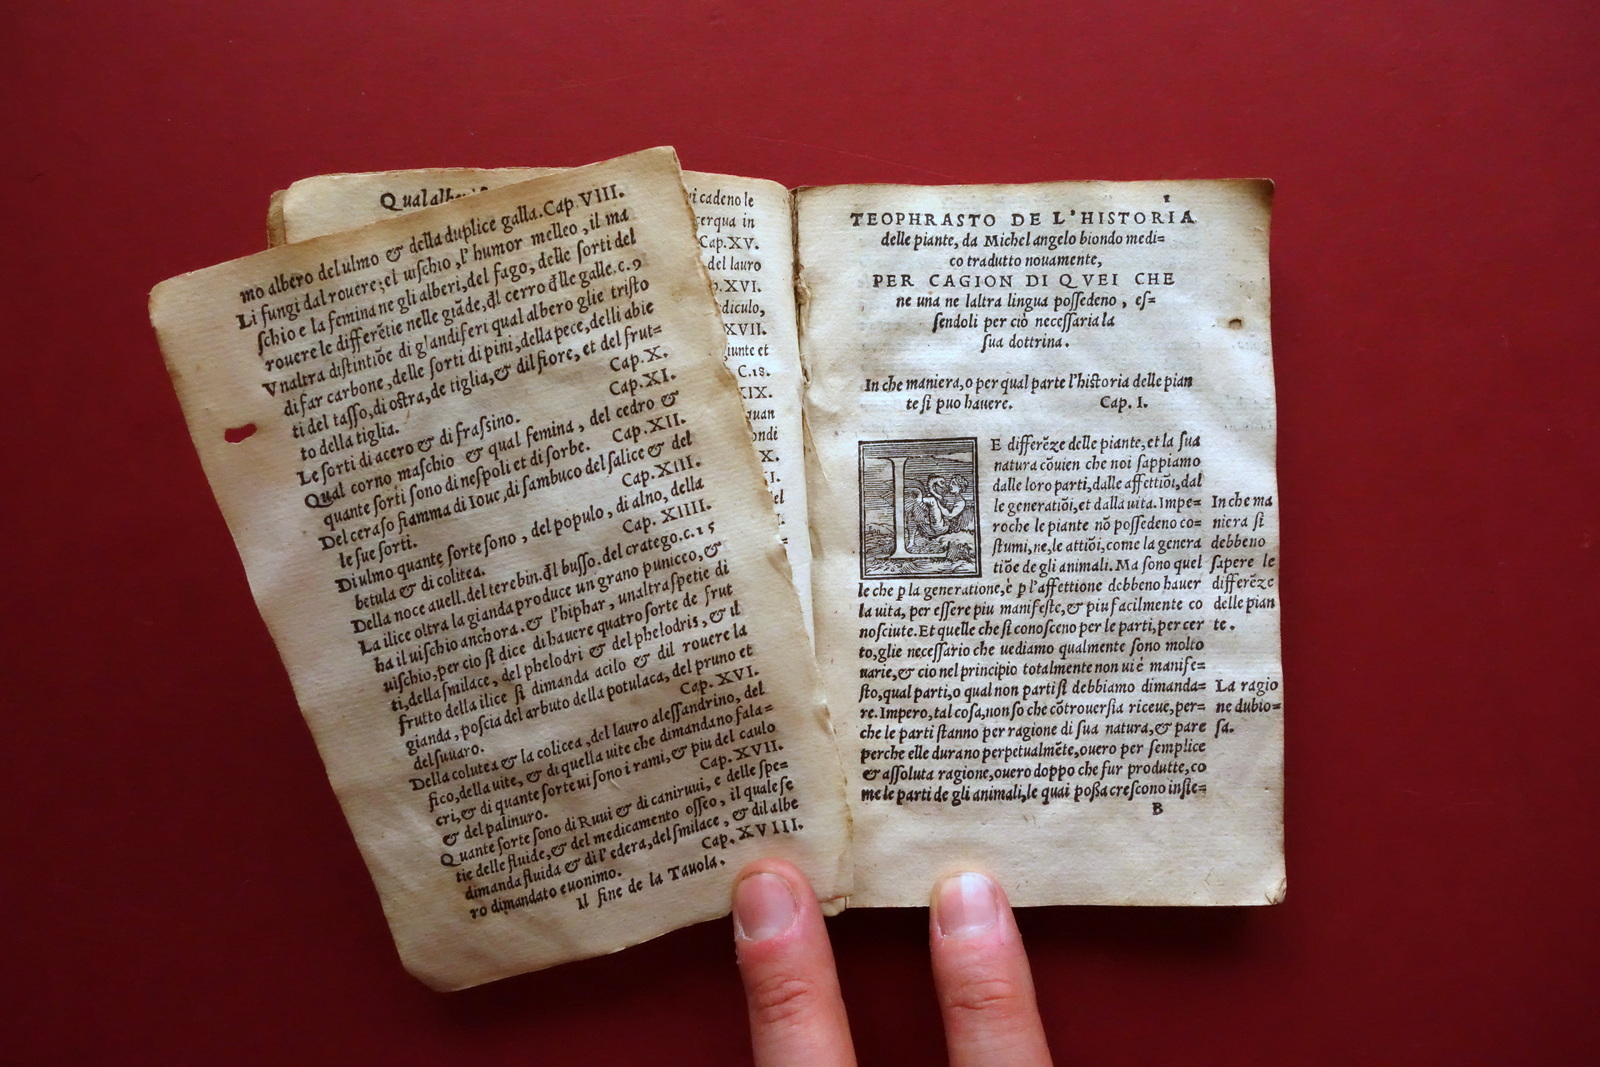 Qual albe
mo albero del ulmo & della duplice galla. Cap. VIII.
Li fungi dal rouere; el uischio, l'humor melleo, il ma
schio e la femina ne gli alberi, del fago, delle sorti del
rouere le differẽtie nelle giãde, đl cerro đlle galle. c. 9
Vnaltra distintiõe di glandiferi qual albero glie tristo
di far carbone, delle sorti di pini, della pece, delli abie
ti del tasso, di ostra, de tiglia, & dil fiore, et del frut=
to della tiglia. Cap. X.
Le sorti di acero & di frassino. Cap. XI.
Qual corno maschio & qual femina, del cedro &
quante sorti sono di nespoli et di sorbe. Cap. XII.
Del ceraso fiamma di Ioue, di sambuco del salice & del
le sue sorti. Cap. XIII.
Di ulmo quante sorte sono, del populo, di alno, della
betula & di colitea. Cap. XIIII.
Della noce auell. del terebin. đl busso. del cratego. c. 15
La ilice oltra la gianda produce un grano puniceo, &
ha il uischio anchora. & l'hiphar, unaltra spetie di
uischio, per cio si dice di hauere quatro sorte de frut
ti, della smilace, del phelodri & del phelodris, & il
frutto della ilice si dimanda acilo & dil rouere la
gianda, poscia del arbuto della potulaca, del pruno et
del suuaro. Cap. XVI.
Della colutea & la colicea, del lauro alessandrino, del
fico, della uite, & di quella uite che dimandano fala=
cri, & di quante sorte ui sono i rami, & piu del caulo
& del palinuro. Cap. XVII.
Quante sorte sono di Ruui & di caniruui, e delle spe=
tie delle fluide, & del medicamento osseo, il quale se
dimanda fluida & di l'edera, del smilace, & dil albe
ro dimandato euonimo. Cap. XVIII.
Il fine de la Tauola.
ui cadeno le
cerqua in
Cap. XV.
del lauro
XVI.
diculo,
XVII.
giunte et
C.18.
XIX.
quan
ondi
X.
I.
el
1
TEOPHRASTO DE L'HISTORIA
delle piante, da Michel angelo biondo medi=
co tradutto nouamente,
PER CAGION DI QVEI CHE
ne una ne laltra lingua possedeno, es=
sendoli per ciò necessaria la
sua dottrina.
In che maniera, o per qual parte l'historia delle pian
te si puo hauere. Cap. I.
LE differẽze delle piante, et la sua
natura cõuien che noi sappiamo
dalle loro parti, dalle affettiõi, dal
le generatiõi, et dalla uita. Impe=
roche le piante nõ possedeno co=
stumi, ne, le attiõi, come la genera
tiõe de gli animali. Ma sono quel
le che p la generatione, è p l'affettione debbeno hauer
la uita, per essere piu manifeste, & piu facilmente co
nosciute. Et quelle che si conosceno per le parti, per cer
to, glie necessario che uediamo qualmente sono molto
uarie, & cio nel principio totalmente non ui è manife=
sto, qual parti, o qual non parti si debbiamo dimanda=
re. Impero, tal cosa, non so che cõtrouersia riceue, per=
che le parti stanno per ragione di sua natura, & pare
perche elle durano perpetualmẽte, ouero per semplice
& assoluta ragione, ouero doppo che fur produtte, co
me le parti de gli animali, le quai possa crescono insie=
B
In che ma
niera si
debbeno
sapere le
differẽze
delle pian
te.
La ragio
ne dubio=
sa.